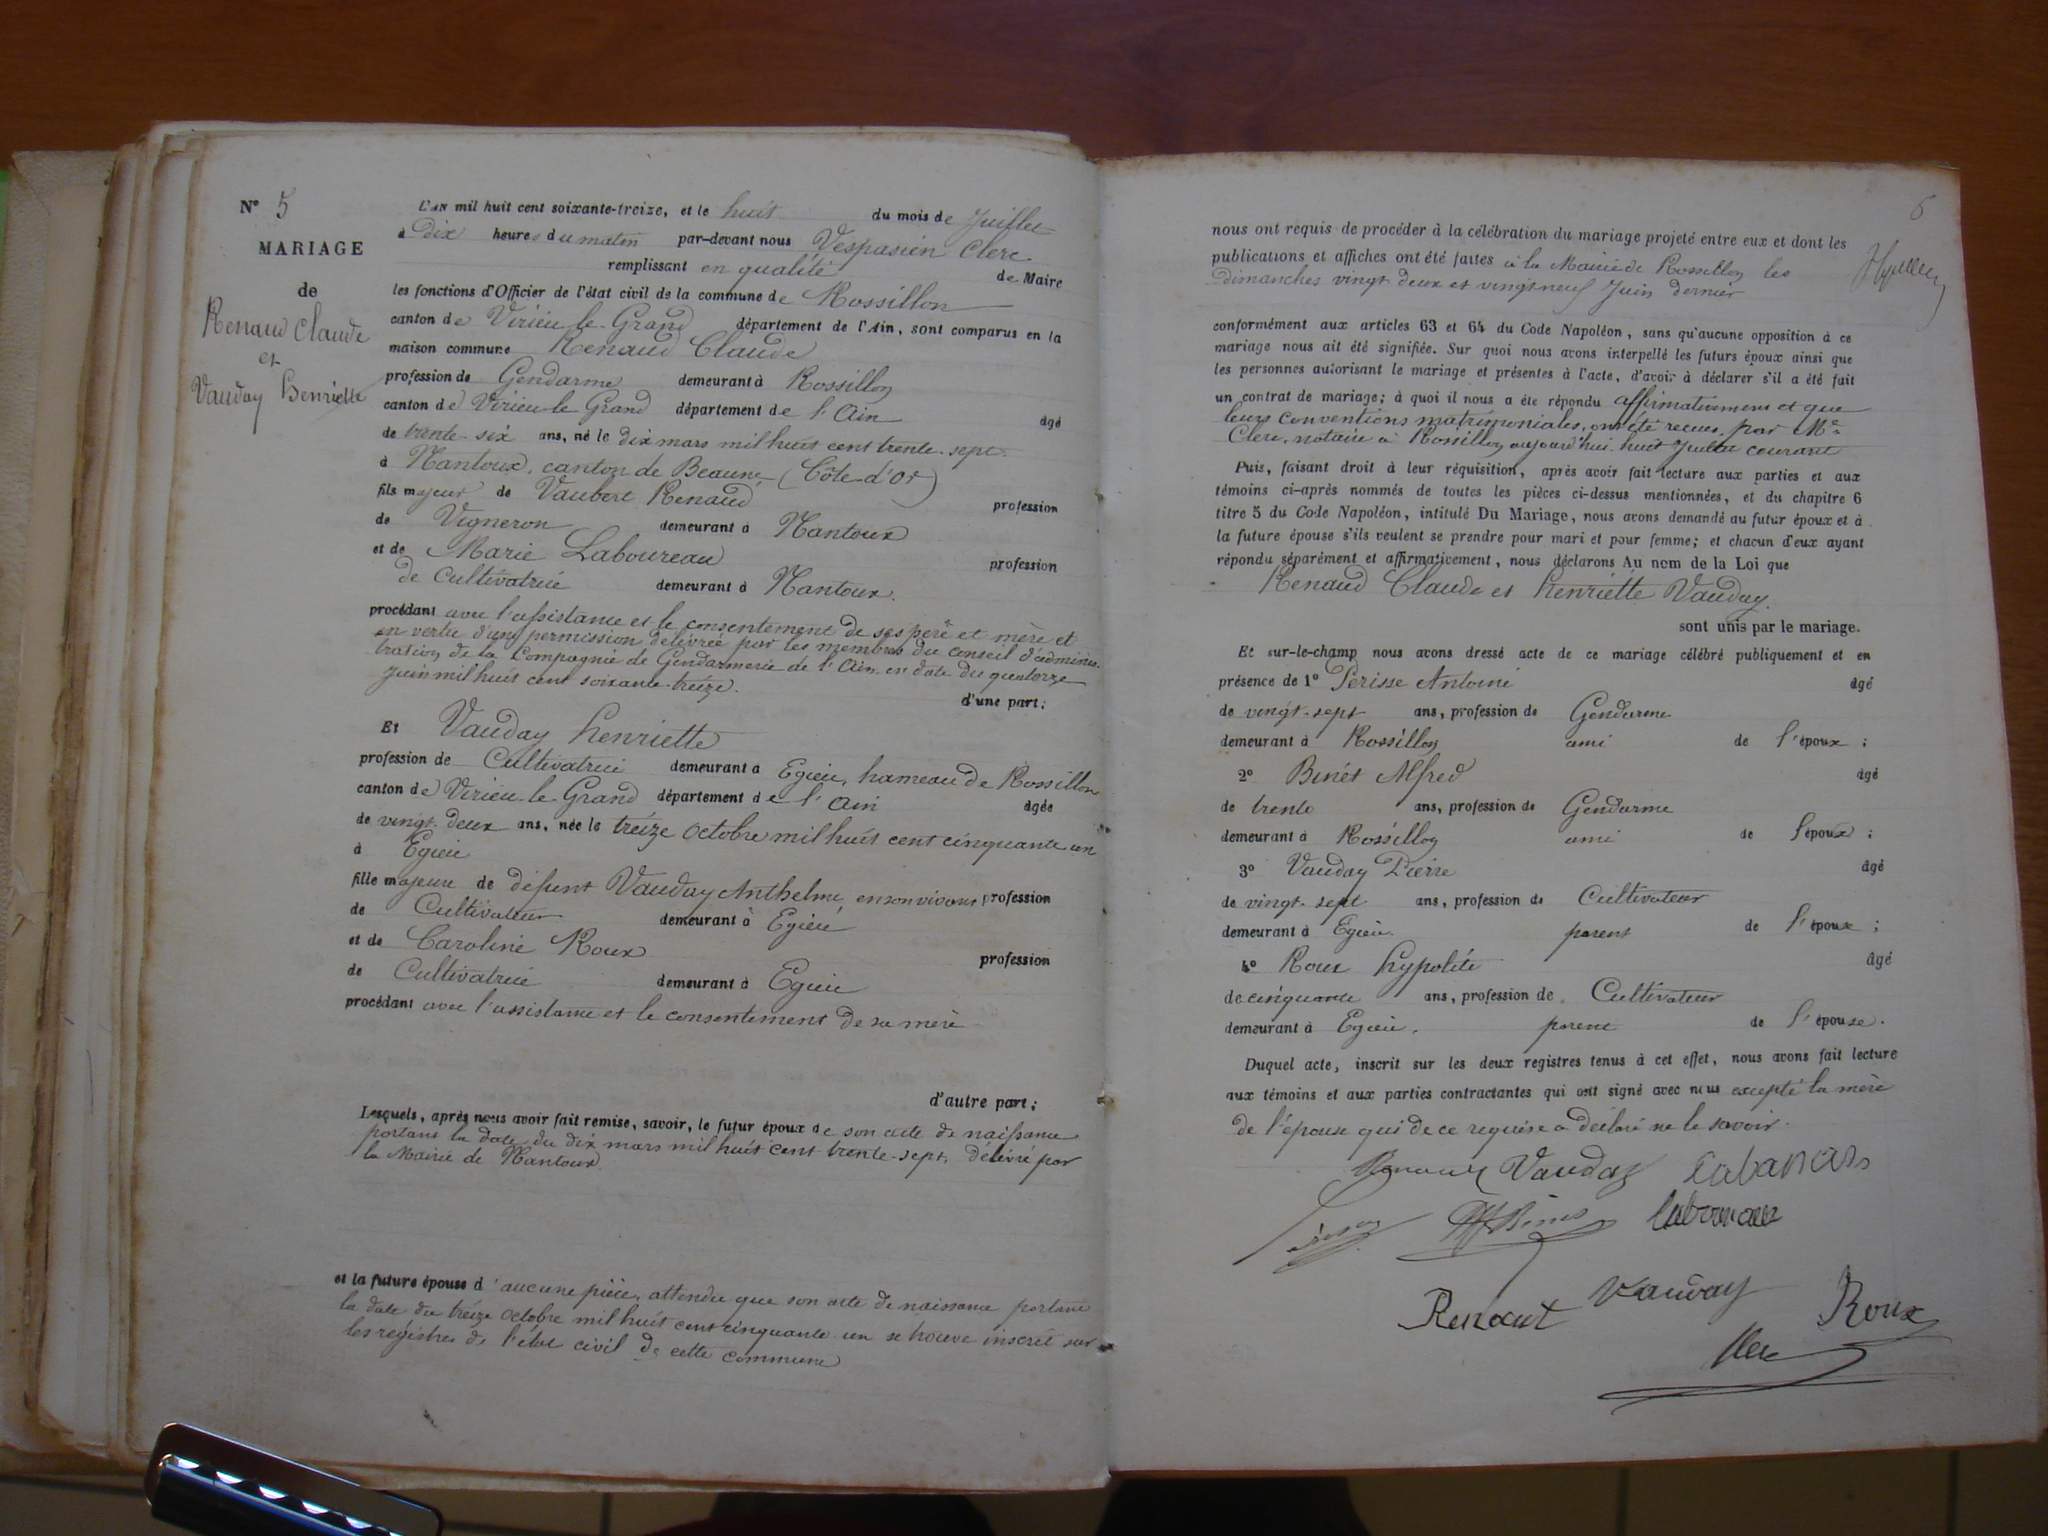 N° 5
MARIAGE
de
Renaud Claude
et
Vauday Henriette
L'AN mil huit cent soixante-treize, et le huit du mois de Juillet
à dix heures du matin par-devant nous Vespasien Clerc
remplissant en qualité de Maire
les fonctions d'Officier de l'état civil de la commune de Rossillon
canton de Virieu-le-Grand département de l'Ain, sont comparus en la
maison commune Renaud Claude
profession de Gendarme demeurant à Rossillon
canton de Virieu-le-Grand département de l'Ain âgé
de trente-six ans, né le dix mars mil huit cent trente-sept
à Nantoux, canton de Beaune (Côte-d'Or)
fils majeur de Vaubert Renaud profession
de Vigneron demeurant à Nantoux
et de Marie Laboureau profession
de Cultivatrice demeurant à Nantoux.
procédant avec l'assistance et le consentement de ses père et mère et
en vertu d'une permission délivrée par les membres du conseil d'adminis-
tration de la Compagnie de Gendarmerie de l'Ain en date du quatorze
juin mil huit cent soixante-treize.
d'une part;
Et Vauday henriette
profession de Cultivatrice demeurant à Egieu, hameau de Rossillon
canton de Virieu-le-Grand département de l'Ain âgée
de vingt-deux ans, née le treize octobre mil huit cent cinquante un
à Egieu
fille majeure de défunt Vauday Anthelme, en son vivant profession
de Cultivateur demeurant à Egieu
et de Caroline Roux profession
de Cultivatrice demeurant à Egieu
procédant avec l'assistance et le consentement de sa mère
d'autre part;
Lesquels, après nous avoir fait remise, savoir, le futur époux de son acte de naissance
portant la date du dix mars mil huit cent trente-sept, délivré par
la Mairie de Nantoux
et la future épouse d'aucune pièce, attendu que son acte de naissance portant
la date du treize octobre mil huit cent cinquante-un se trouve inscrit sur
les registres de l'état civil de cette commune
6
nous ont requis de procéder à la célébration du mariage projeté entre eux et dont les
publications et affiches ont été faites à la Mairie de Rossillon les
dimanches vingt deux et vingt neuf Juin dernier
conformément aux articles 63 et 64 du Code Napoléon, sans qu'aucune opposition à ce
mariage nous ait été signifiée. Sur quoi nous avons interpellé les futurs époux ainsi que
les personnes autorisant le mariage et présentes à l'acte, d'avoir à déclarer s'il a été fait
un contrat de mariage; à quoi il nous a été répondu affirmativement et que
leurs conventions matrimoniales, ont été reçues, par Me
Clerc, notaire à Rossillon aujourd'hui huit Juillet courant
Puis, faisant droit à leur réquisition, après avoir fait lecture aux parties et aux
témoins ci-après nommés de toutes les pièces ci-dessus mentionnées, et du chapitre 6
titre 5 du Code Napoléon, intitulé Du Mariage, nous avons demandé au futur époux et à
la future épouse s'ils veulent se prendre pour mari et pour femme; et chacun d'eux ayant
répondu séparément et affirmativement, nous déclarons Au nom de la Loi que
Renaud Claude et henriette Vauday.
sont unis par le mariage.
Et sur-le-champ nous avons dressé acte de ce mariage célébré publiquement et en
présence de 1° Perisse Antoine âgé
de vingt-sept ans, profession de Gendarme
demeurant à Rossillon ami de l'époux;
2° Binet Alfred âgé
de trente ans, profession de Gendarme
demeurant à Rossillon ami de l'époux;
3° Vauday Pierre âgé
de vingt-sept ans, profession de Cultivateur
demeurant à Egieu. parent de l'époux;
4° Roux hypolite âgé
de cinquante ans, profession de Cultivateur
demeurant à Egieu. parent de l'épouse.
Duquel acte, inscrit sur les deux registres tenus à cet effet, nous avons fait lecture
aux témoins et aux parties contractantes qui ont signé avec nous excepté la mère
de l'épouse qui de ce requise a déclaré ne le savoir.
Vauday
Binet
Vauday
Roux
Clerc